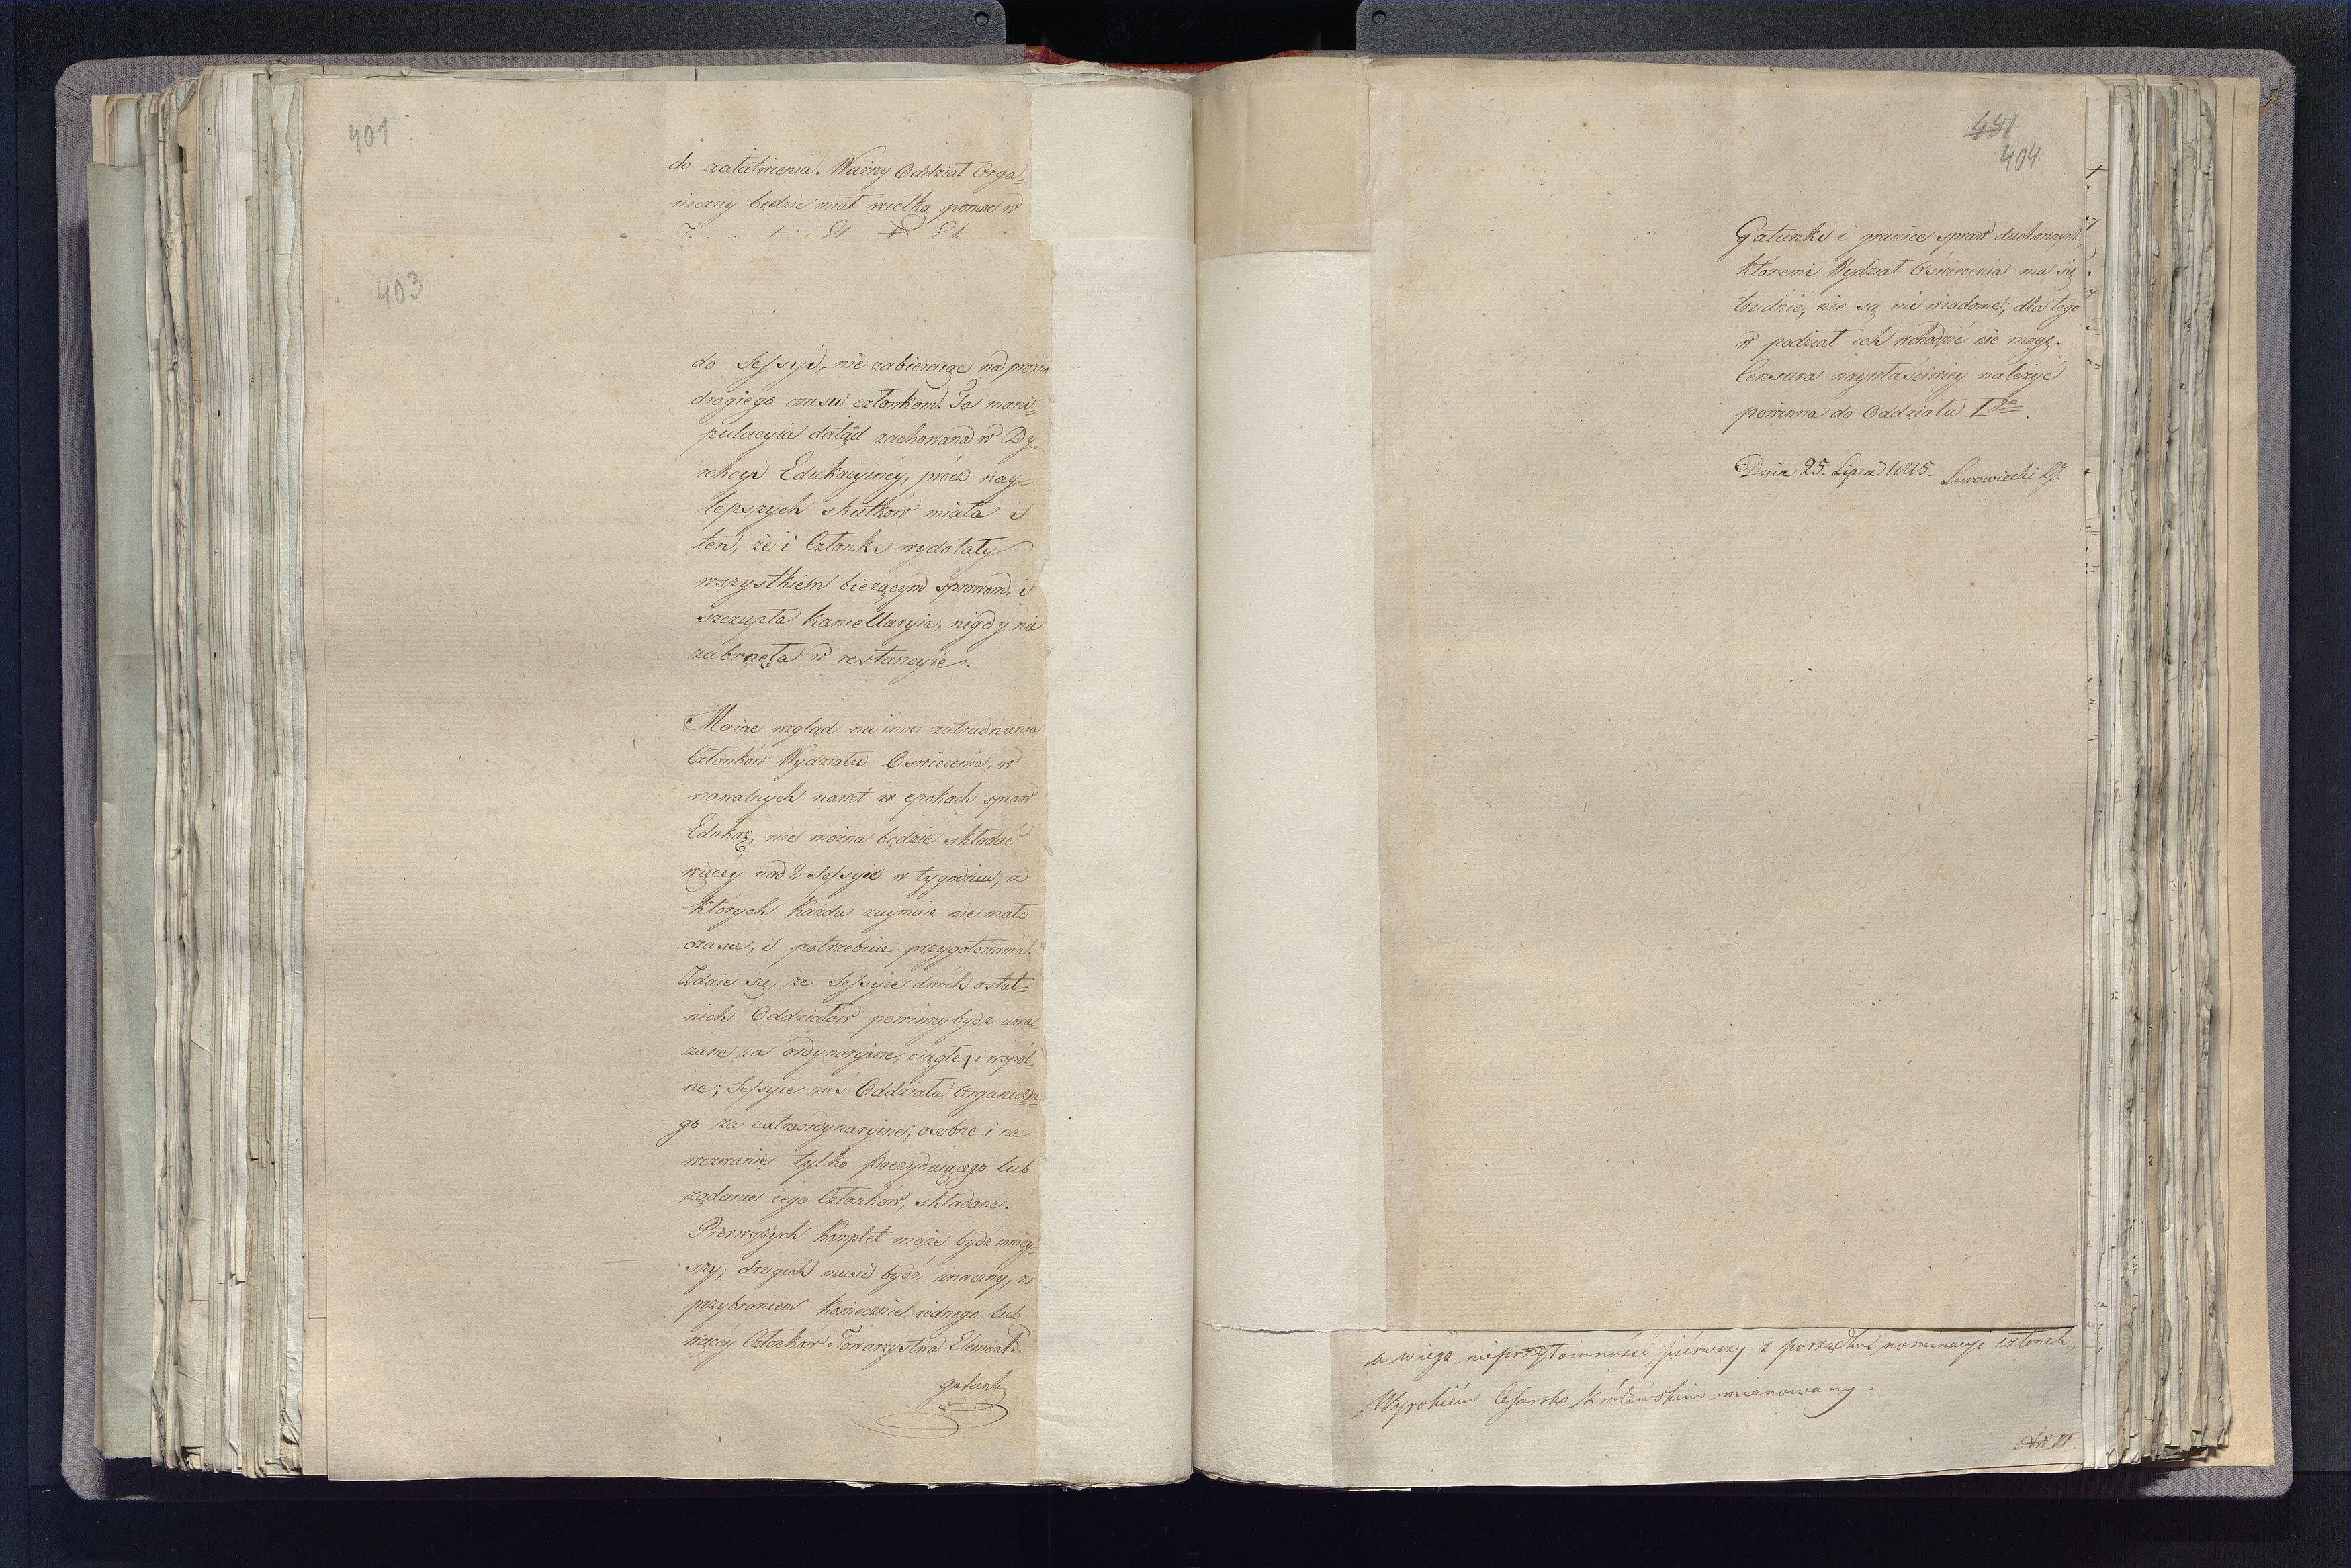 401
do załatwienia. Ważny Oddział Orga=
niczny będzie miał wielką pomoc w
403
do Sessyi, nie zabieraiąc na próżno
drogiego czasu członkom. Ta mani=
pulacyia dotąd zachowana w Dy=
rekcyi Edukacyinéy, prócz nay=
lepszych skutków miała i
ten, że i Członki wydołały
wszystkiem bieżącym sprawom, i
szczupła kancellaryia, nigdy nie
zabrnęła w restancyie.
Maiąc wzgląd na inne zatrudnienia
Członków Wydziału Oswiecenia, w
nawalnych nawet epokach spraw
Eduka, nie można będzie składać
więcéy nad 2 Sessyie w tygodniu, z
których każda zaymuie nie mało
czasu, i potrzebuie przygotowania.
Zdaie się, że Sessyie dwóch ostat=
nich Oddziałów powinny bydź uwa=
żane za ordynaryine, ciągłe, i wspól=
ne; Sessyie zaś Oddziału Organiczne=
go za extraordynaryine, osobne i na
wezwanie tylko Prezyduiącego lub
żądanie iego Członków, składane.
Pierwszych komplet może bydź mniey=
szy; drugich musi bydź znaczny, z
przybraniem koniecznie iednego lub
więcéy Członków Towarzystwa Element:
gatunki
441
404
Gatunki i granice spraw duchownych,
któremi Wydział Oświecenia ma się
trudnić, nie są mi wiadome; dla tego
w podział ich wchodzić nie mogę.
Censura naywłaściwiey należyć
powinna do Oddziału I go.
Dnia 25. Lipca 1815. Surowiecki
a w iego nieprzytomności pierwszy z porządku nominacyi członek,
Wyrokiem Cesarsko Królewskim mianowany.